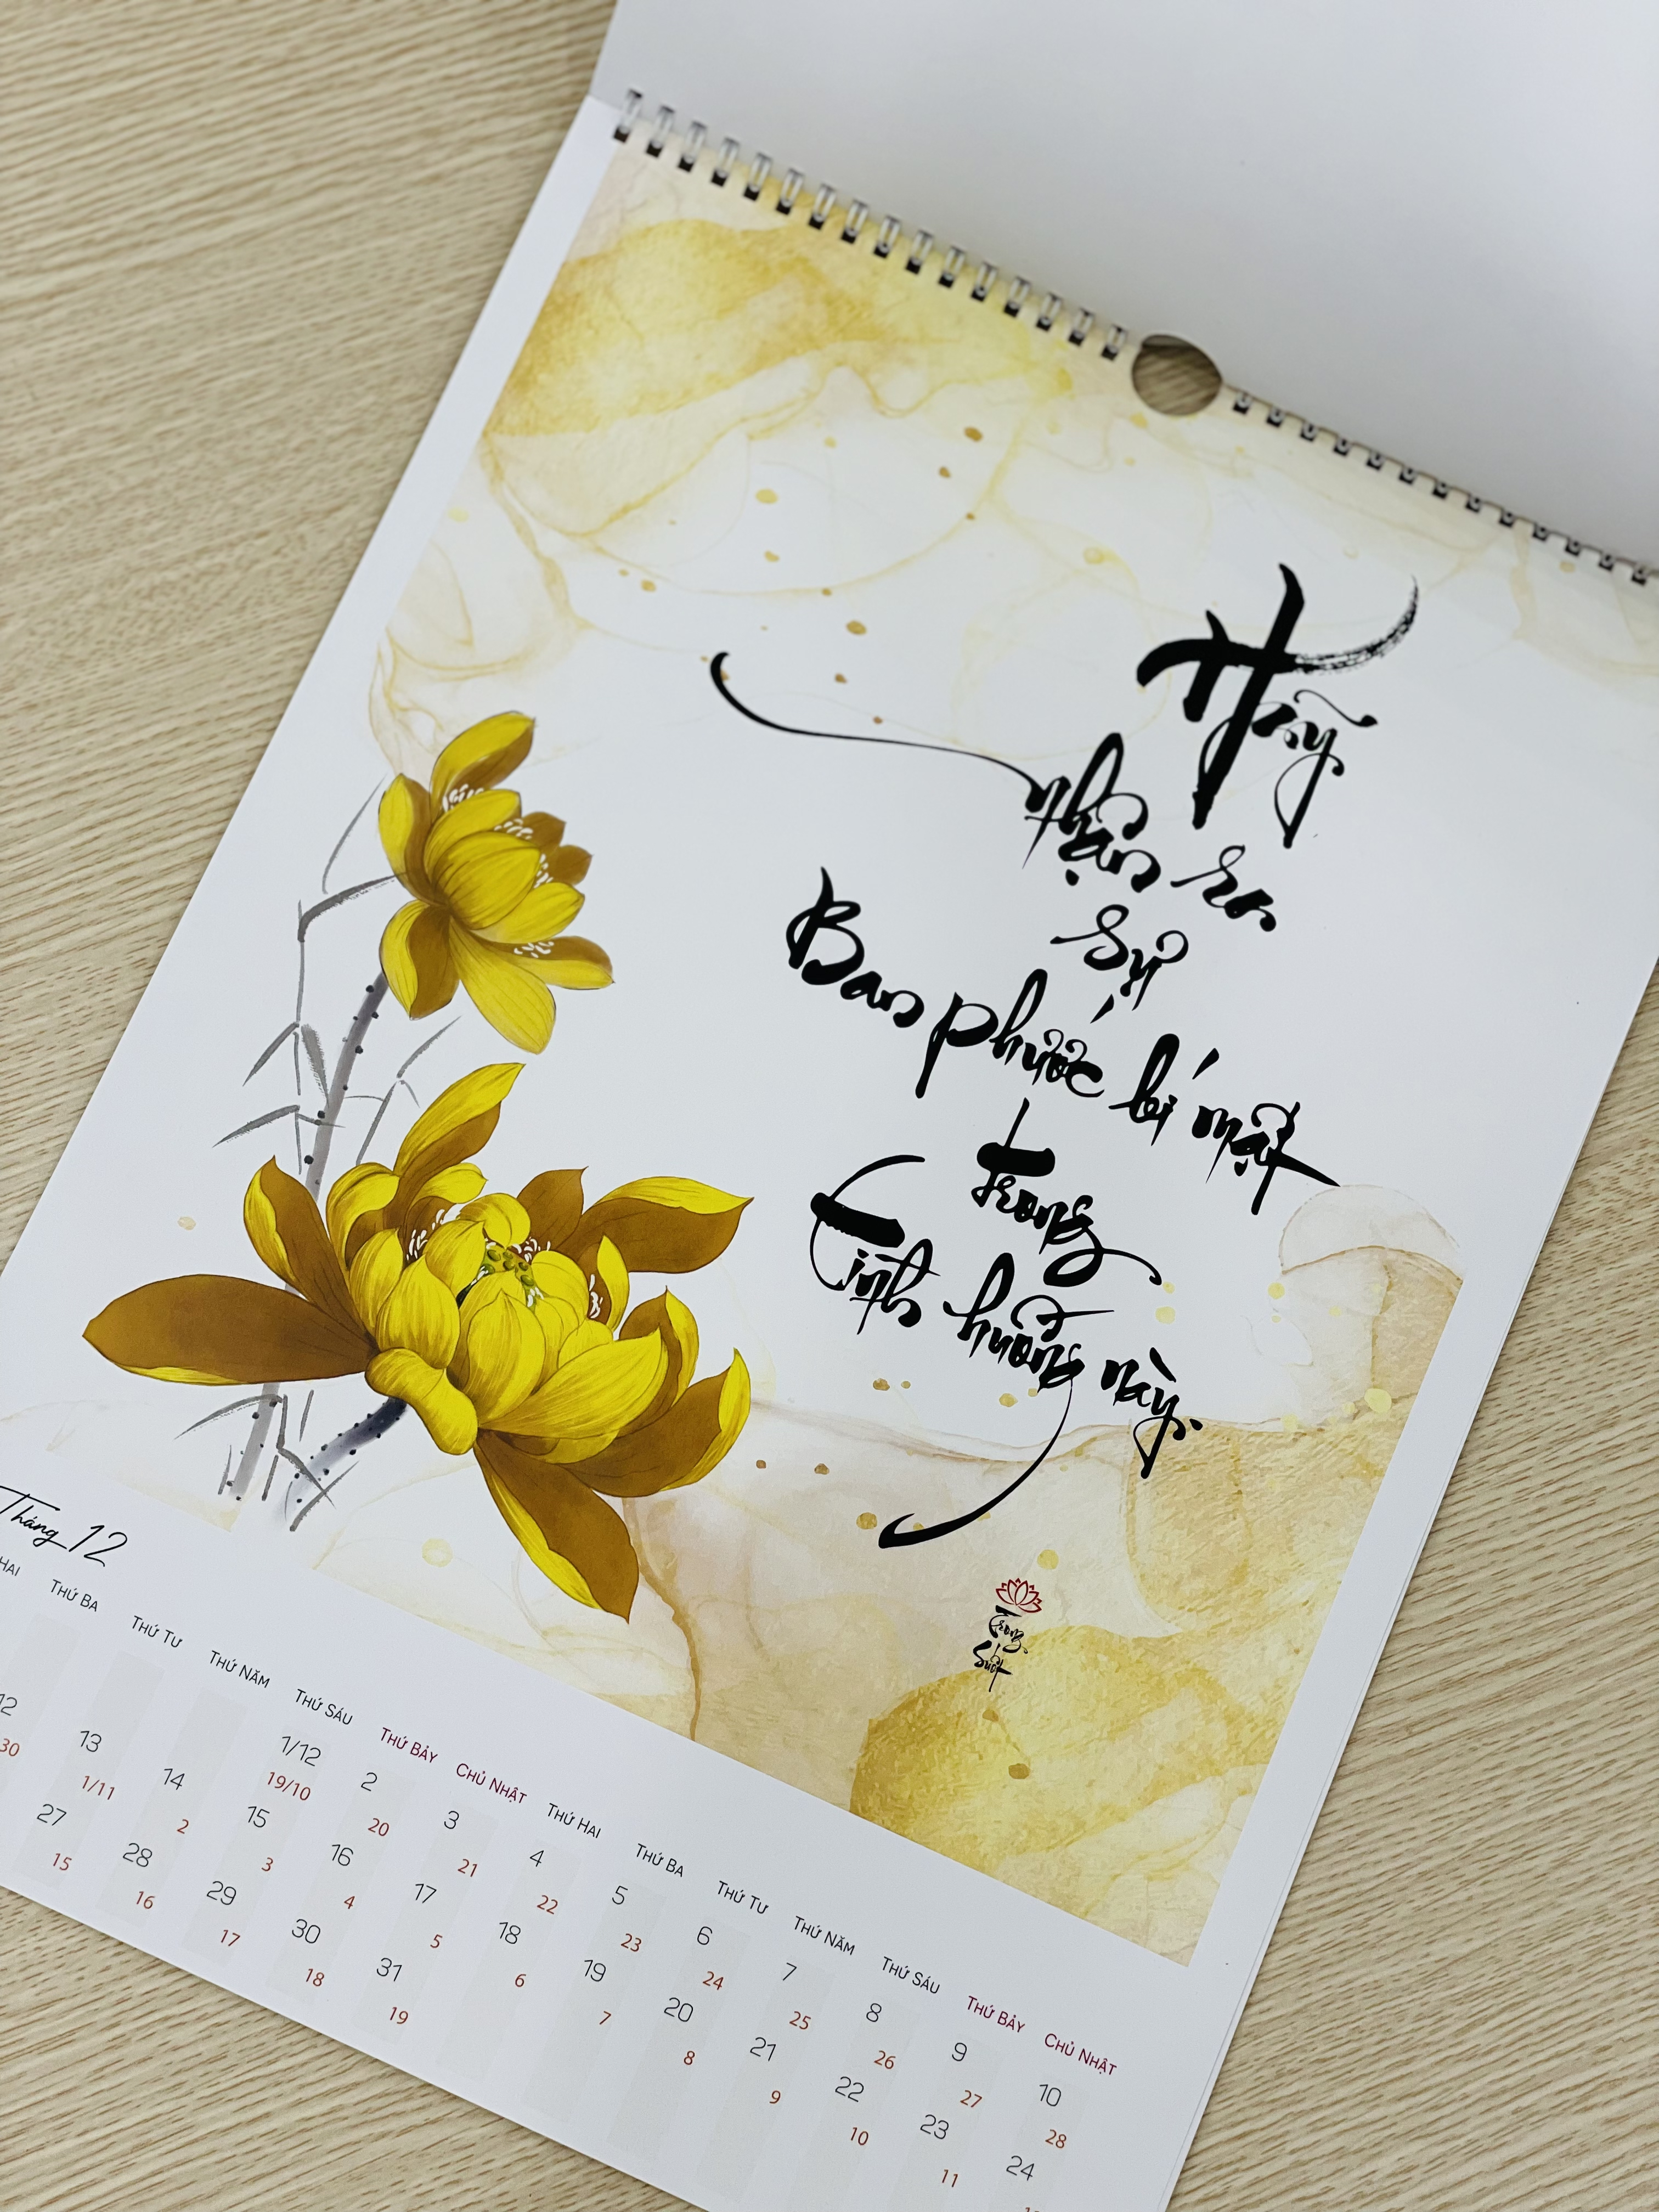 Hãy
nhận ra
sự
Ban phước bí mật
trong
Tình huống này.
Trong
Suốt
Tháng 12
HAI THỨ BA THỨ TƯ THỨ NĂM THỨ SÁU THỨ BẢY CHỦ NHẬT THỨ HAI THỨ BA THỨ TƯ THỨ NĂM THỨ SÁU THỨ BẢY CHỦ NHẬT
1/12 2 3 4 5 6 7 8 9 10
19/10 20 21 22 23 24 25 26 27 28
12 13 14 15 16 17 18 19 20 21 22 23 24
30 1/11 2 3 4 5 6 7 8 9 10 11
27 28 29 30 31
15 16 17 18 19